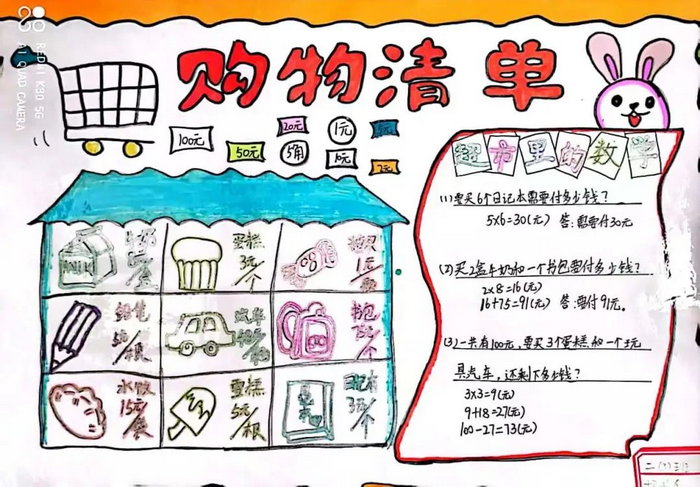 REDMI K30 5G
AI QUAD CAMERA
购物清单
100元
50元
20元
5角
1元
10元
2元
超市里的数学
蛋糕
3元/个
1元
铅笔
汽车
书包
水饺
15元/袋
雪糕
5元/根
日记本
(1)要买6个日记本需要付多少钱?
5×6=30(元) 答:需要付30元
(2)买2盒牛奶和一个书包需付多少钱?
2×8=16(元)
16+75=91(元) 答:要付91元。
(3)一共有100元,要买3个蛋糕和一个玩
具汽车,还剩下多少钱?
3×3=9(元)
9+18=27(元)
100-27=73(元)